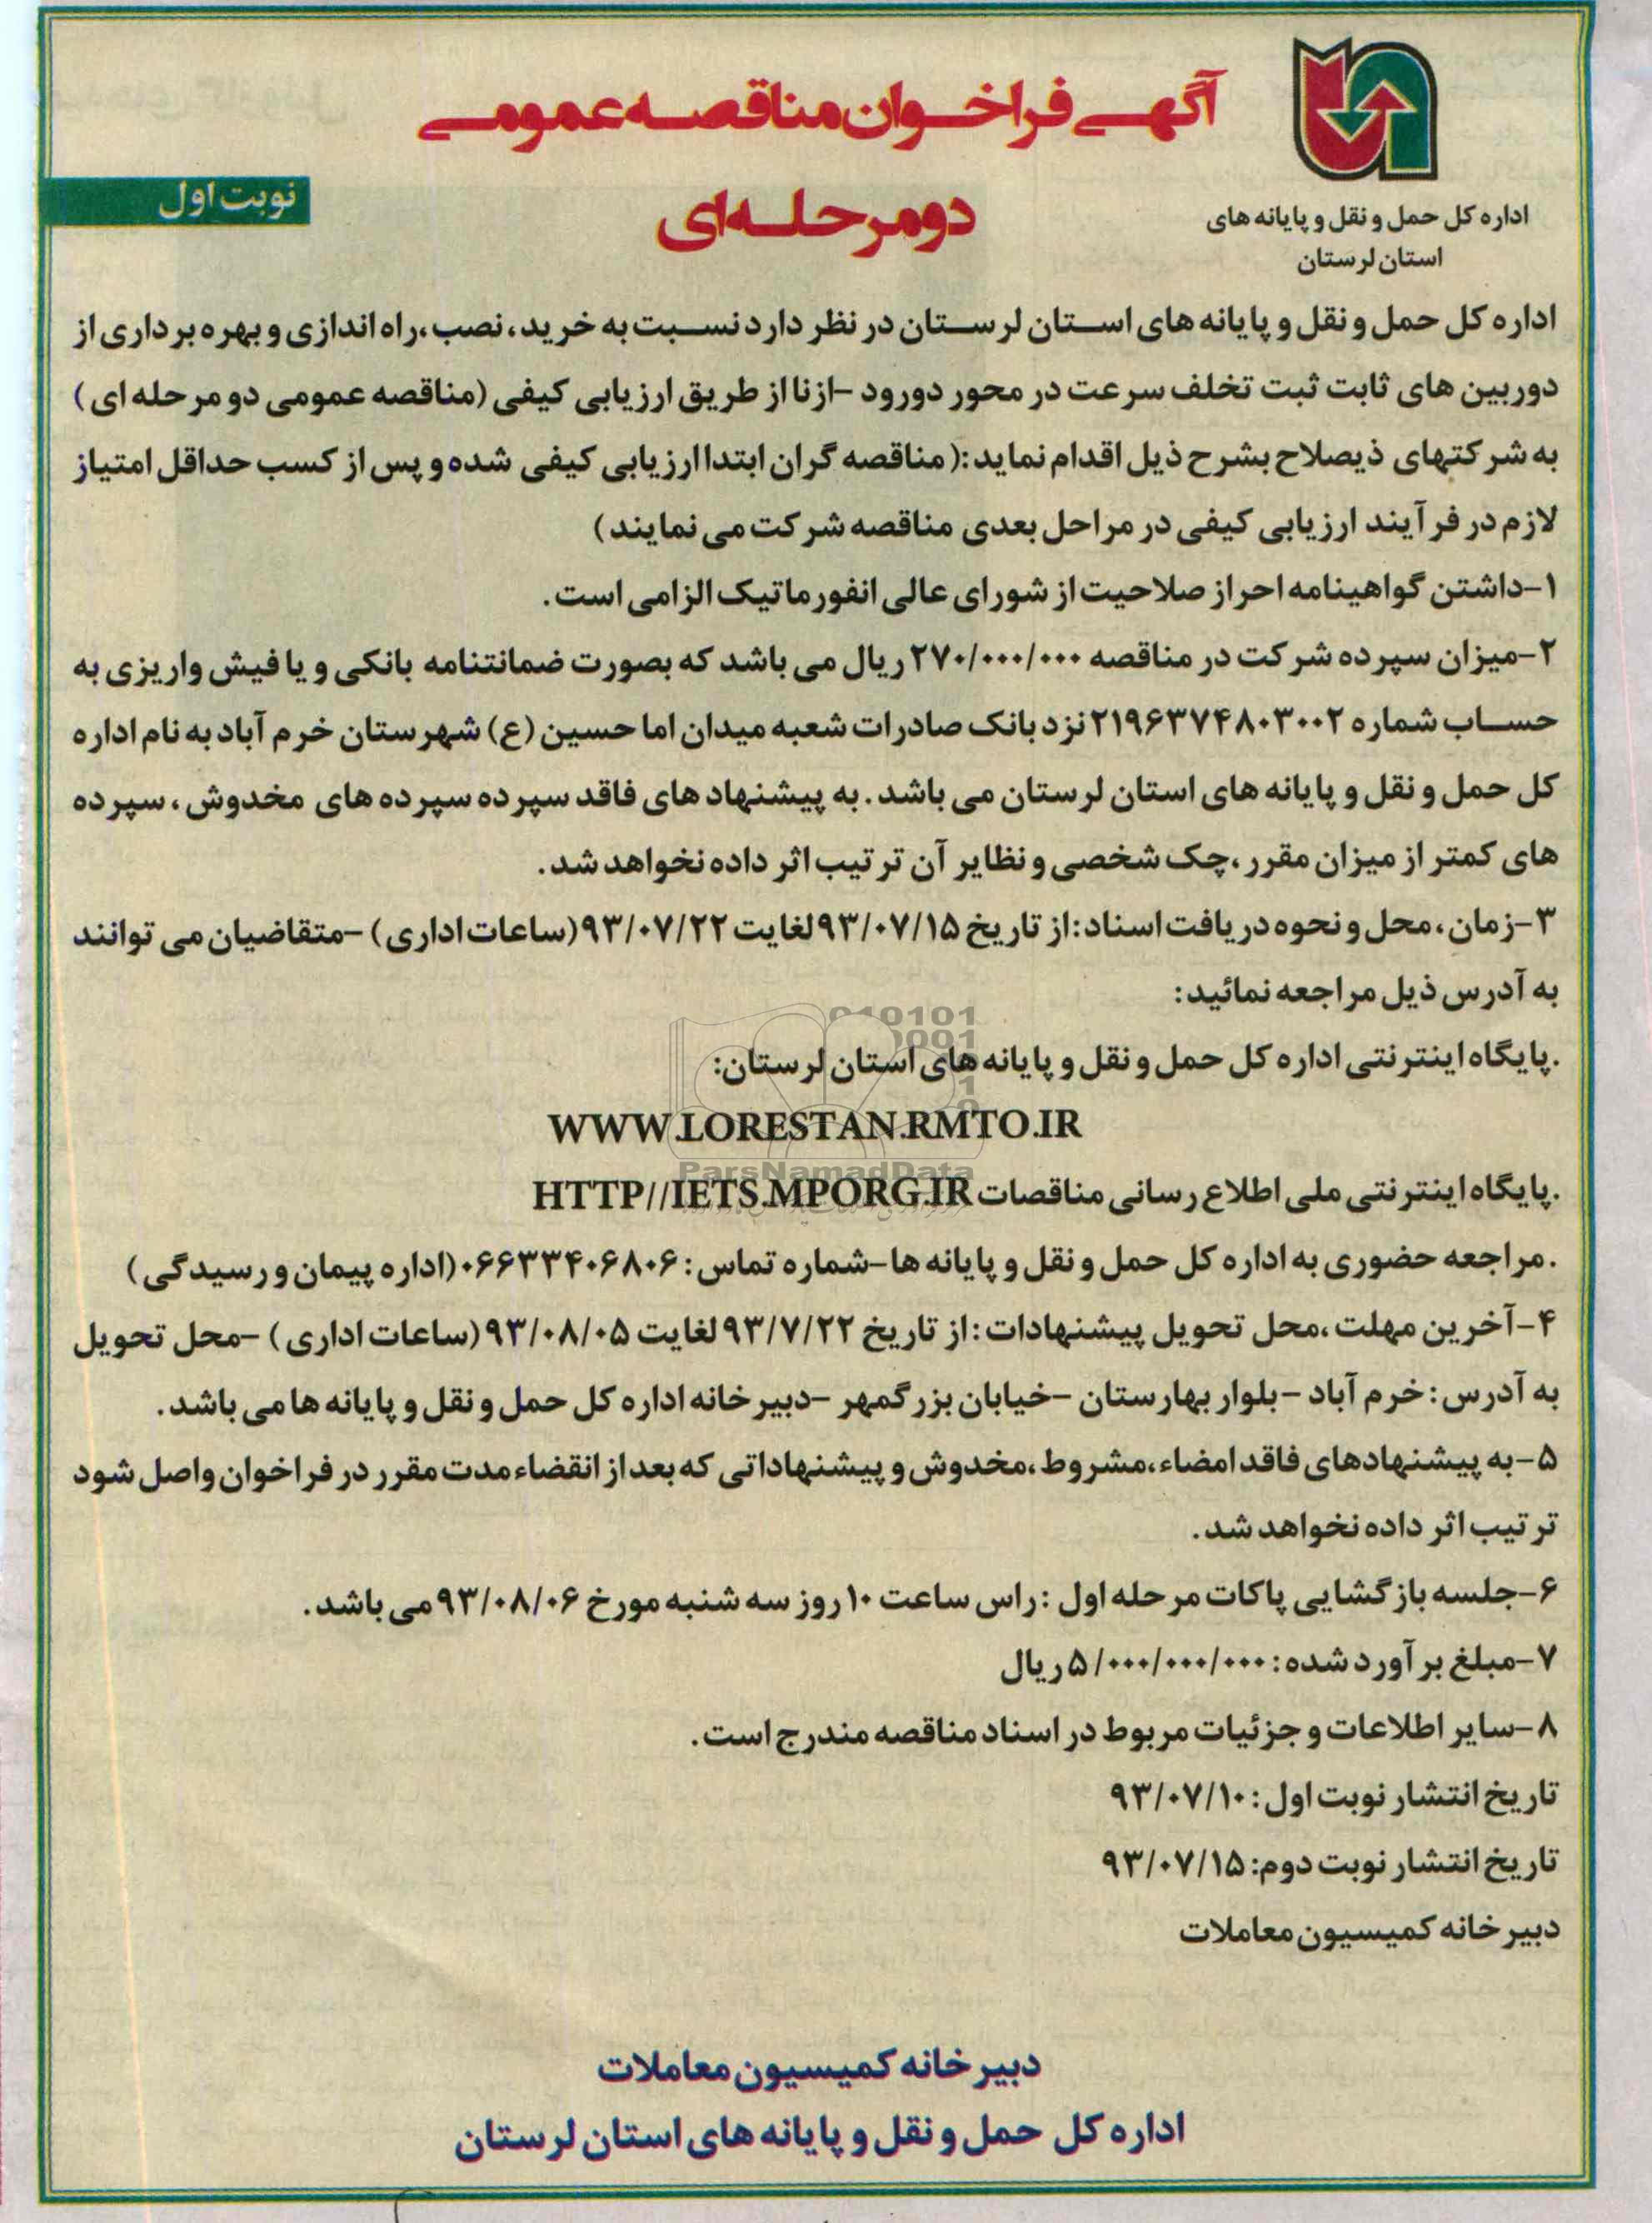 آگهی فراخوان مناقصه عمومی
دو مرحله ای
نوبت اول
اداره کل حمل و نقل و پایانه های
استان لرستان
اداره کل حمل و نقل و پایانه های استان لرستان در نظر دارد نسبت به خرید، نصب، راه اندازی و بهره برداری از
دوربین های ثابت ثبت تخلف سرعت در محور دورود -ازنا از طریق ارزیابی کیفی (مناقصه عمومی دو مرحله ای )
به شرکتهای ذیصلاح بشرح ذیل اقدام نماید:( مناقصه گران ابتدا ارزیابی کیفی شده و پس از کسب حداقل امتیاز
لازم در فرآیند ارزیابی کیفی در مراحل بعدی مناقصه شرکت می نمایند )
۱-داشتن گواهینامه احراز صلاحیت از شورای عالی انفورماتیک الزامی است.
۲-میزان سپرده شرکت در مناقصه ۲۷۰/۰۰۰/۰۰۰ ریال می باشد که بصورت ضمانتنامه بانکی و یا فیش واریزی به
حساب شماره ۲۱۹۶۳۷۴۸۰۳۰۰۲ نزد بانک صادرات شعبه میدان اما حسین (ع) شهرستان خرم آباد به نام اداره
کل حمل و نقل و پایانه های استان لرستان می باشد. به پیشنهاد های فاقد سپرده سپرده های مخدوش، سپرده
های کمتر از میزان مقرر، چک شخصی و نظایر آن ترتیب اثر داده نخواهد شد.
۳-زمان، محل و نحوه دریافت اسناد: از تاریخ ۹۳/۰۷/۱۵ لغایت ۹۳/۰۷/۲۲ (ساعات اداری) -متقاضیان می توانند
به آدرس ذیل مراجعه نمائید:
.پایگاه اینترنتی اداره کل حمل و نقل و پایانه های استان لرستان:
WWW.LORESTAN.RMTO.IR
.پایگاه اینترنتی ملی اطلاع رسانی مناقصات HTTP//IETS.MPORG.IR
.مراجعه حضوری به اداره کل حمل و نقل و پایانه ها-شماره تماس: ۰۶۶۳۳۴۰۶۸۰۶ (اداره پیمان و رسیدگی )
۴-آخرین مهلت، محل تحویل پیشنهادات: از تاریخ ۹۳/۷/۲۲ لغایت ۹۳/۰۸/۰۵ (ساعات اداری ) -محل تحویل
به آدرس: خرم آباد -بلوار بهارستان -خیابان بزرگمهر -دبیرخانه اداره کل حمل و نقل و پایانه ها می باشد.
۵-به پیشنهادهای فاقد امضاء، مشروط، مخدوش و پیشنهاداتی که بعد از انقضاء مدت مقرر در فراخوان واصل شود
ترتیب اثر داده نخواهد شد.
۶-جلسه بازگشایی پاکات مرحله اول : راس ساعت ۱۰ روز سه شنبه مورخ ۹۳/۰۸/۰۶ می باشد.
۷-مبلغ برآورد شده: ۵/۰۰۰/۰۰۰/۰۰۰ ریال
۸-سایر اطلاعات و جزئیات مربوط در اسناد مناقصه مندرج است.
تاریخ انتشار نوبت اول: ۹۳/۰۷/۱۰
تاریخ انتشار نوبت دوم: ۹۳/۰۷/۱۵
دبیرخانه کمیسیون معاملات
دبیرخانه کمیسیون معاملات
اداره کل حمل و نقل و پایانه های استان لرستان
ParsNamadData